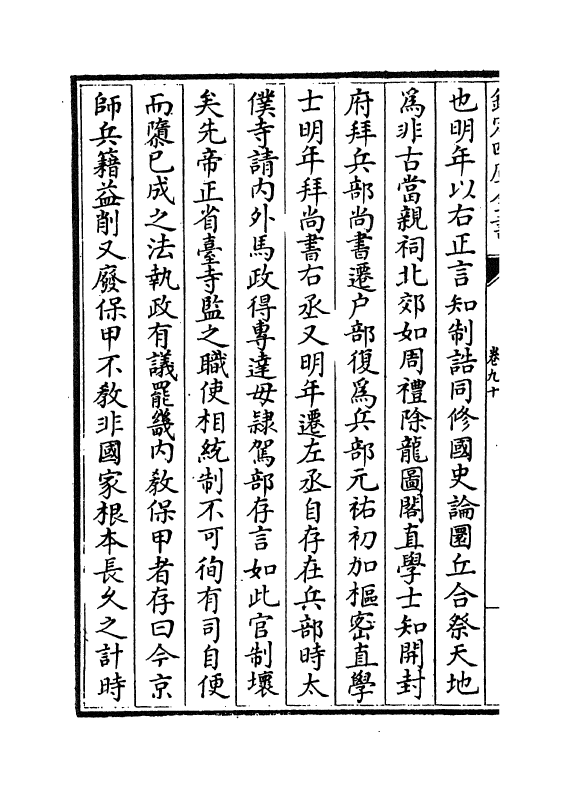 卷九十
也明年以右正言知制誥同修國史論圜丘合祭天地
為非古當親祠北郊如周禮除龍圖閣直學士知開封
府拜兵部尚書遷户部復為兵部元祐初加樞密直學
士明年拜尚書右丞又明年遷左丞自存在兵部時太
僕寺請内外馬政得專達毋隷駕部存言如此官制壞
矣先帝正省臺寺監之職使相統制不可徇有司自便
而隳已成之法執政有議罷畿内敎保甲者存曰今京
師兵籍益削又廢保甲不敎非國家根本長久之計時